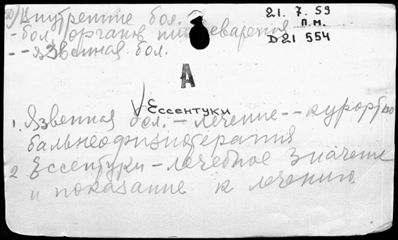 Внутренние бол.
21. 7. 59
- бол. органов пищеварения
п.м.
Д21 554
- - язвенная бол.
А
√ Ессентуки
1. Язвенная бол. - лечение - - курортно
бальнеофизиотерапия
2 Ессентуки - лечебное значение
и показание к лечению